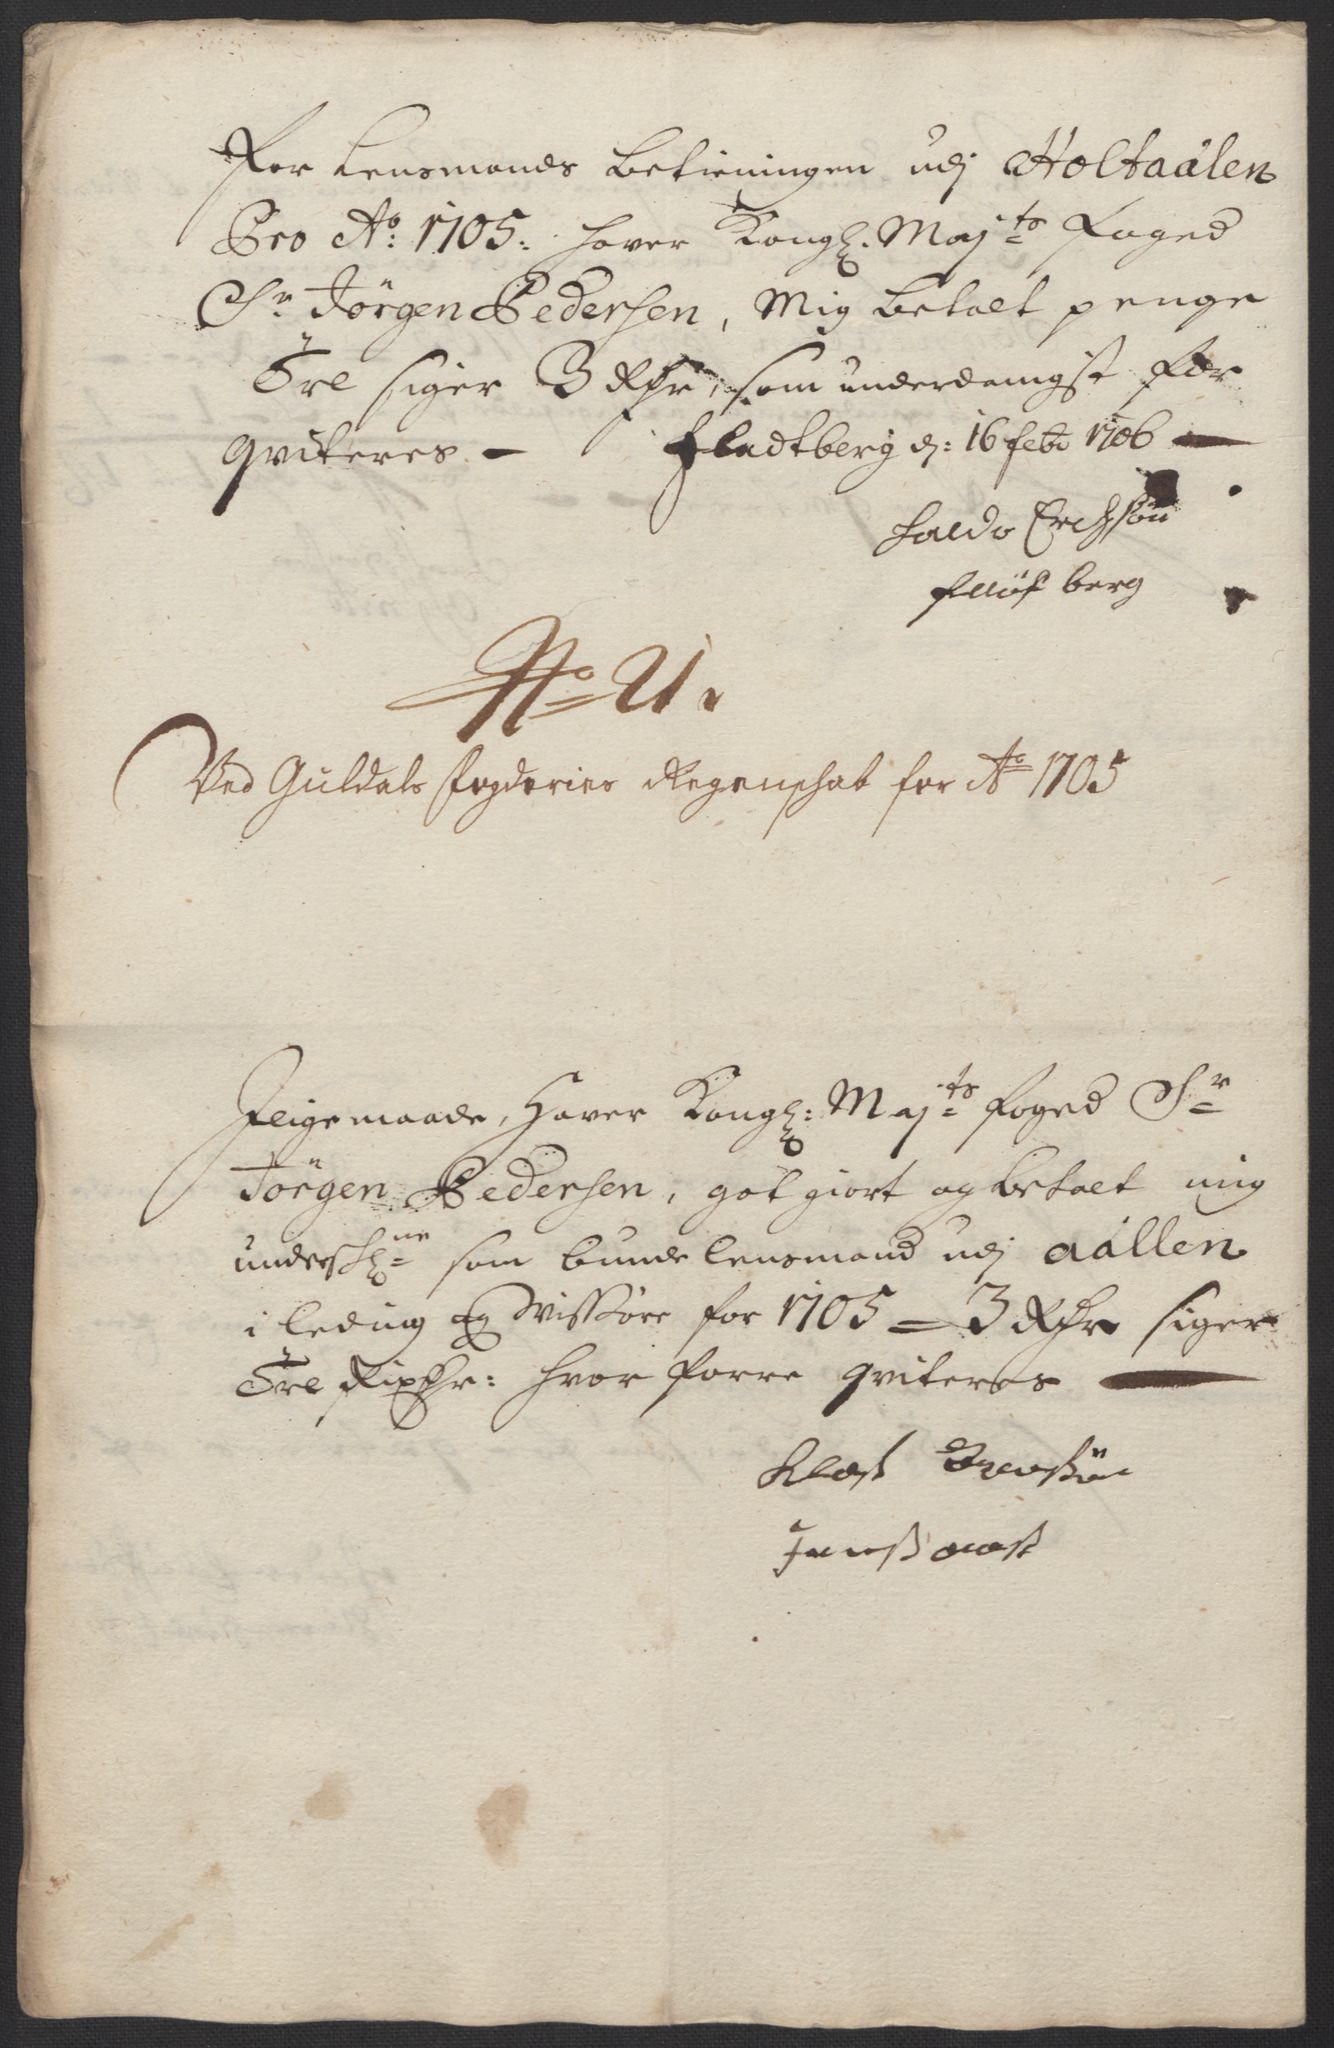 For Lensmands Betieningen udj Holtaalen
Pro Ao: 1705: haver Kongl: Majts Foged
Sr Jörgen Pedersen, Mig betalt penge
Tre siger 3 Rdr, som underdanigst for
qviteres — Fladtberg d: 16 feb: 1706 —
Haldo Erichsön
No U.
Ved Guldals Fogderies Regenschab for Ao 1705
Ligemaade, Haver Kongl: Majts foged Sr
Jörgen Pedersen, got giort og betalt mig
undersch:ne som bunde Lensmand udj Aallen
i leding og Vissöre for 1705 — 3 Rdr siger
Tre Rixdr: hvor forre qviteres —